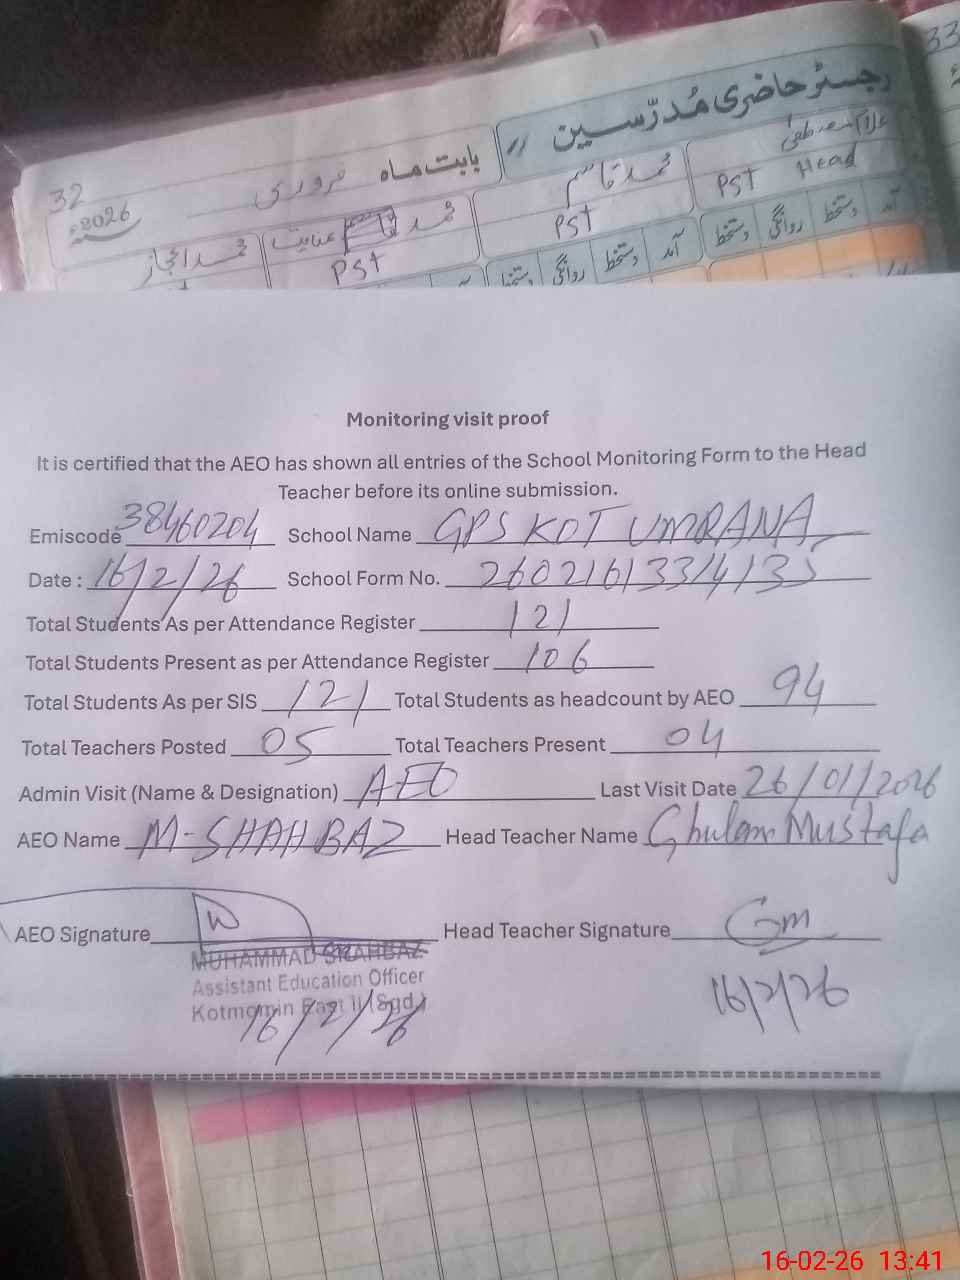 33
رجسٹر حاضری مُدرّسین //
بابت ماہ فروری
32
2026ء
غلام مصطفیٰ
PST Head
محمد قاسم
PST
محمد عنایت
PST
محمد اعجاز
آمد دستخط روانگی دستخط
آمد دستخط روانگی دستخط
Monitoring visit proof
It is certified that the AEO has shown all entries of the School Monitoring Form to the Head
Teacher before its online submission.
Emiscode 38460204 School Name GPS KOT UMRANA
Date : 16/2/26 School Form No.
Total Students As per Attendance Register 121
Total Students Present as per Attendance Register 106
Total Students As per SIS 121 Total Students as headcount by AEO 94
Total Teachers Posted 05 Total Teachers Present 04
Admin Visit (Name & Designation) AEO Last Visit Date 26/01/2026
AEO Name M-SHAHBAZ Head Teacher Name Ghulam Mustafa
AEO Signature Head Teacher Signature Gm
MUHAMMAD SHAHBAZ
Assistant Education Officer
Kotmomin East ii (Sgd)
16/2/26
16/2/26
16-02-26 13:41